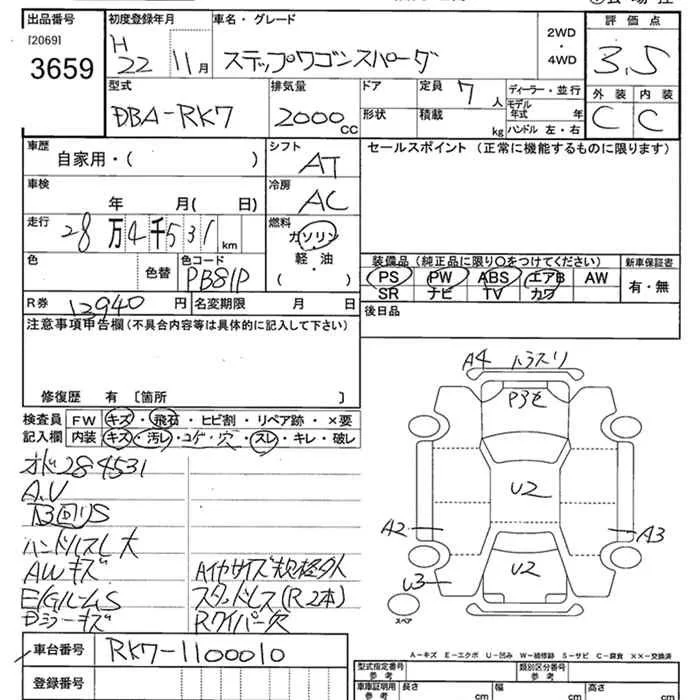 出品番号 初度登録年月 車名・グレード 2WD・4WD 評価点
[2069]
3659
H22 11月 ステップワゴンスパーダ 3.5
型式 排気量 ドア 定員 7人 ディーラー・並行 外装 内装
DBA-RK7 2000cc 形状 積載 kg モデル年式 年 C C
ハンドル 左・右
車歴 自家用・( ) シフト AT セールスポイント (正常に機能するものに限ります)
車検 年 月( 日) 冷房 AC
走行 28万4千531km 燃料 ガソリン・軽油・( )
色 色替 色コード PB81P
装備品(純正品に限り○をつけてください) 新車保証書
PS PW ABS エアB AW 有・無
SR ナビ TV カワ
R券 13940円 名変期限 月 日 後日品
注意事項申告欄(不具合内容等は具体的に記入して下さい)
修復歴 有 〔箇所 〕
検査員 FW キズ・飛石・ヒビ割・リペア跡・×要
記入欄 内装 キズ・汚レ・コゲ・穴・スレ・キレ・破レ
オド284531
A.V
ハンドルスレ大
AWキズ タイヤサイズ規格外
E/GルームS スタッドレス(R2本)
Rワイパー欠
A4
U2
A2 A3
U3 U2
スペア
A-キズ E-エクボ U-凹み W-補修跡 S-サビ C-腐食 ××-交換済
車台番号 RK7-1100010
登録番号
型式指定番号 参考 類別区分番号 参考
車庫証明用 参考 長さ cm 幅 cm 高さ cm